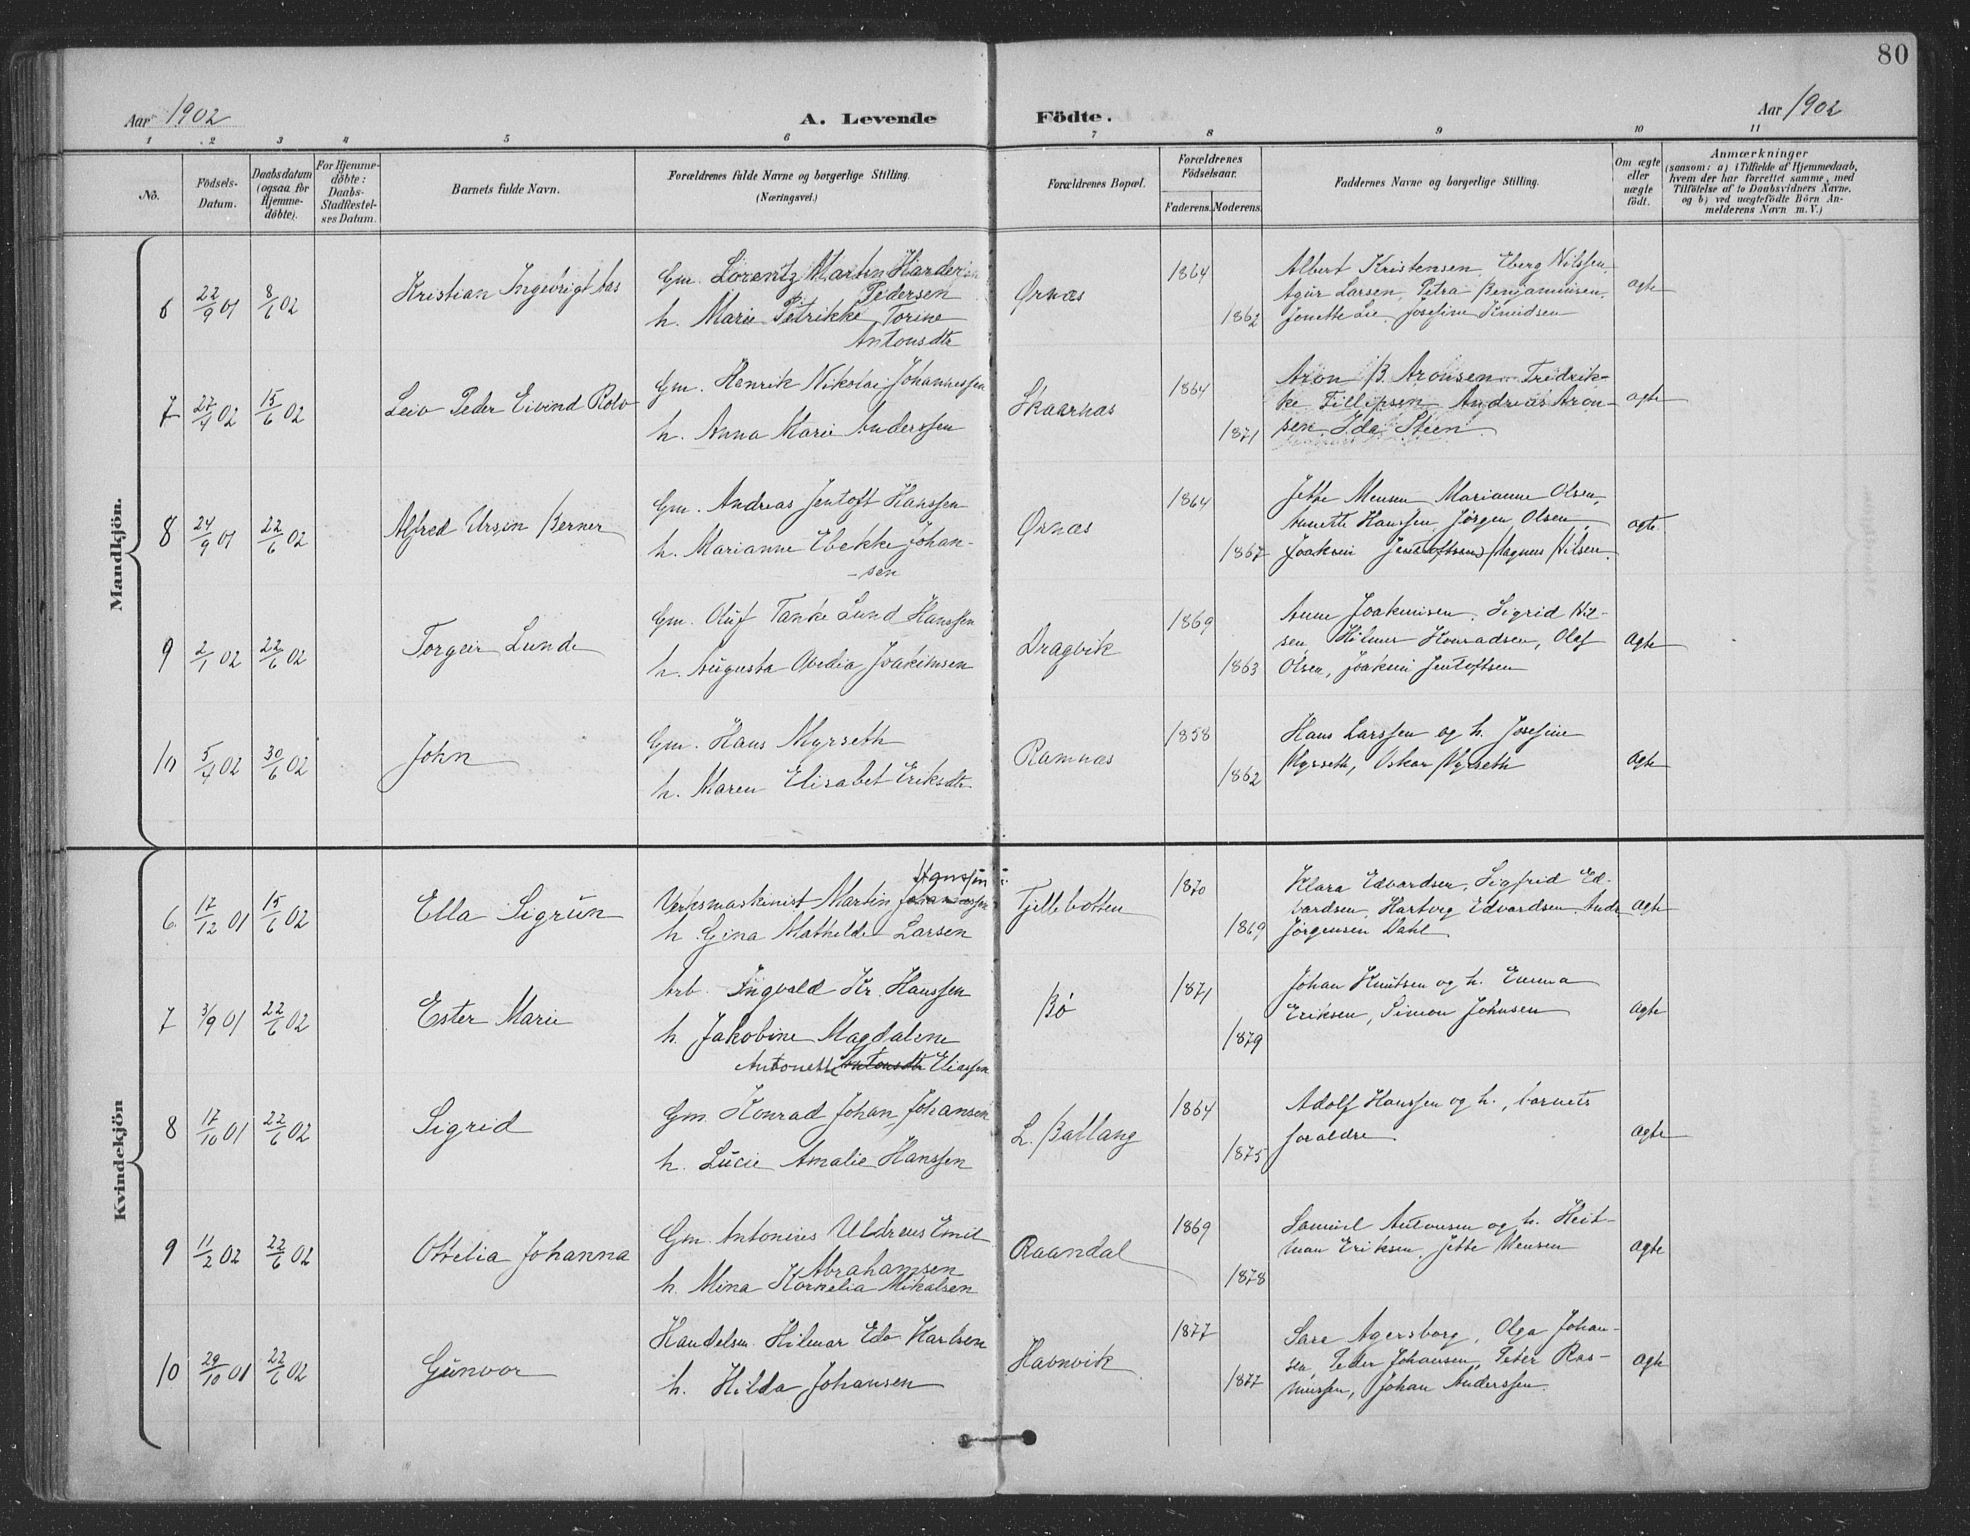 80
Aar 1902
A. Levende Födte.
Aar 1902
1 2 3 4 5 6 7 8 9 10 11
No.
Födsels-Datum.
Daabsdatum (ogsaa for Hjemme-döbte).
For Hjemme-döbte: Daabs-Stadfestel-ses Datum.
Barnets fulde Navn.
Forældrenes fulde Navne og borgerlige Stilling. (Næringsvei.)
Forældrenes Bopæl.
Forældrenes Födselsaar.
Faderens. Moderens.
Faddernes Navne og borgerlige Stilling.
Om ægte eller uægte födt.
Anmærkninger
(saasom: a) i Tilfælde af Hjemmedaab, hvem der har forrettet samme, med Tilföielse af to Daabsvidners Navne, og b) ved uægtefödte Börn An-melderens Navn m. V.)
Mandkjön.
6 22/9 01 8/6 02 Kristian Ingebrigt
Gm. Lorentz Martin Harder
Pedersen
h. Marie Petrikke Torine
Antonsdtr
Ørnæs 1864 1862
Albert Kristensen, Eberg Nilssen,
Agur Larsen, Petra Benjaminsen,
Jonette Lie, Josefine Knudsen
ægte
7 27/4 02 15/6 02 Leiv Peder Eivind Rolv
Gm. Henrik Nikolai Johannessen
h. Anna Marie Anderssen
Skaarnæs 1864 1871
Aron B. Aronsen, Fredrik-
ke Fillipsen, Andreas Aron-
sen, Ida Steen
ægte
8 24/9 01 22/6 02 Alfred Ursin Berner
Gm. Andreas Jentoft Hanssen
h. Marianne Ebekke Johan-
-sen
Ørnæs 1864 1867
Jette Mensen, Marianne Olsen,
Anette Hanssen, Jørgen Olsen,
Joakim Jentoftsen, Magnus Nilsen.
ægte
9 2/1 02 22/6 02 Torgeir Lund
Gm. Oluf Tanke Lund Hanssen
h. Augusta Ovedia Joakimsen
Dragvik 1869 1863
Anne Joakimsen, Sigrid Nil-
sen, Hilmer Konradsen, Olaf
Olsen, Joakim Jentoftsen
ægte
10 5/4 02 30/6 02 John
Gm. Hans Myrseth
h. Maren Elisabet Eriksdtr
Ramnæs 1858 1862
Hans Larssen og h. Josefine
Myrseth, Oskar Myrseth
ægte
Kvindekjön
6 17/12 01 15/6 02 Ella Sigrun
Hanssen
Verksmaskinist Martin Johannessen
h. Gina Mathilde Larsen
Tjellebotten 1870 1869
Klara Edvardsen, Sigfrid Ed-
vardsen, Hartvig Edvardsen, Andr
Jørgensen Dahl
ægte
7 3/9 01 22/6 02 Ester Marie
Arb. Ingvald Kr. Hanssen
h. Jakobine Magdalene
Antonette Antonsdtr Eliassen
Bø 1871 1879
Johan Knutsen og h. Emma
Eriksen, Simon Johnsen
ægte
8 17/10 01 22/6 02 Sigrid
Gm. Konrad Johan Johansen
h. Lucie Amalie Hanssen
L. Ballang 1864 1875
Adolf Hanssen og h., barnets
forældre
ægte
9 11/2 02 22/6 02 Ottelia Johanna
Gm. Antonius Uldreus Emil
Abrahamsen
h. Mina Kornelia Mikalsen
Raandal 1869 1878
Samuel Antonsen og h. Heit-
man Eriksen, Jette Mensen
ægte
10 29/10 01 22/6 02 Gunvor
Handelsm. Hilmar Edv. Karlsen
h. Hilda Johansen
Havnvik 1877 1877
Sare Agersborg, Olga Johan-
sen, Peder Johansen, Peter Ras-
mussen, Johan Anderssen.
ægte